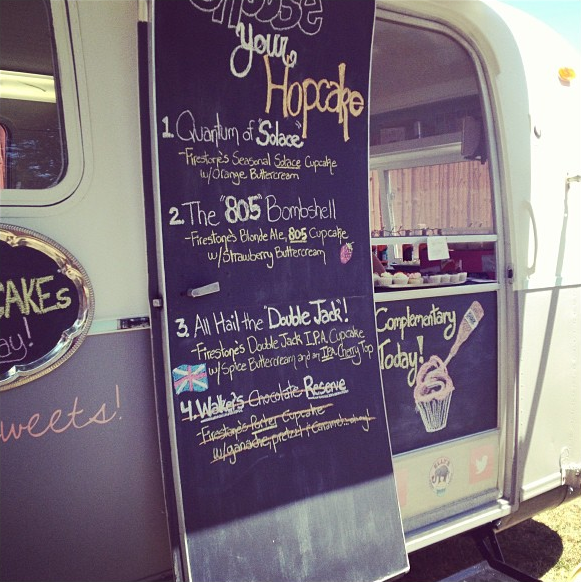 Choose
your
Hopcake
1. Quantum of "Solace"
-Firestone's Seasonal Solace Cupcake
w/Orange Buttercream
2. The "805" Bombshell
-Firestone's Blonde Ale, 805 Cupcake
w/Strawberry Buttercream
3. All Hail the "Double Jack"!
-Firestone's Double Jack I.P.A. Cupcake
w/Spice Buttercream and an IPA Cherry Top
4. Walker's Chocolate Reserve
-Firestone's Porter Cupcake
w/ganache, pretzel &
Complementary
Today!
CAKEs
ay!
weets!